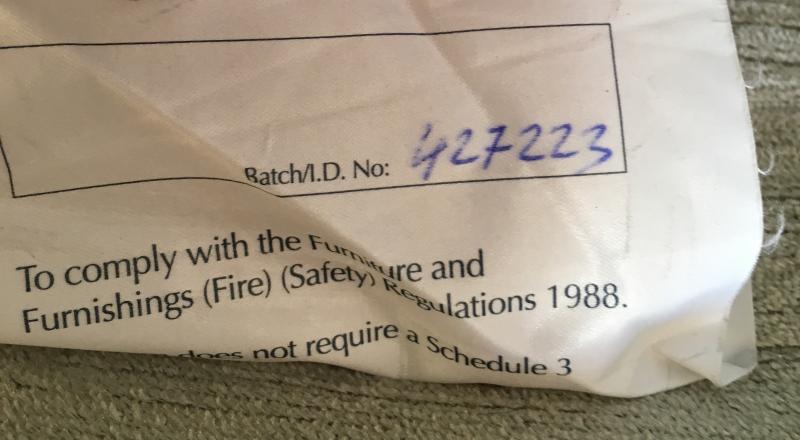 Batch/I.D. No: 427223
To comply with the Furniture and
Furnishings (Fire) (Safety) Regulations 1988.
does not require a Schedule 3